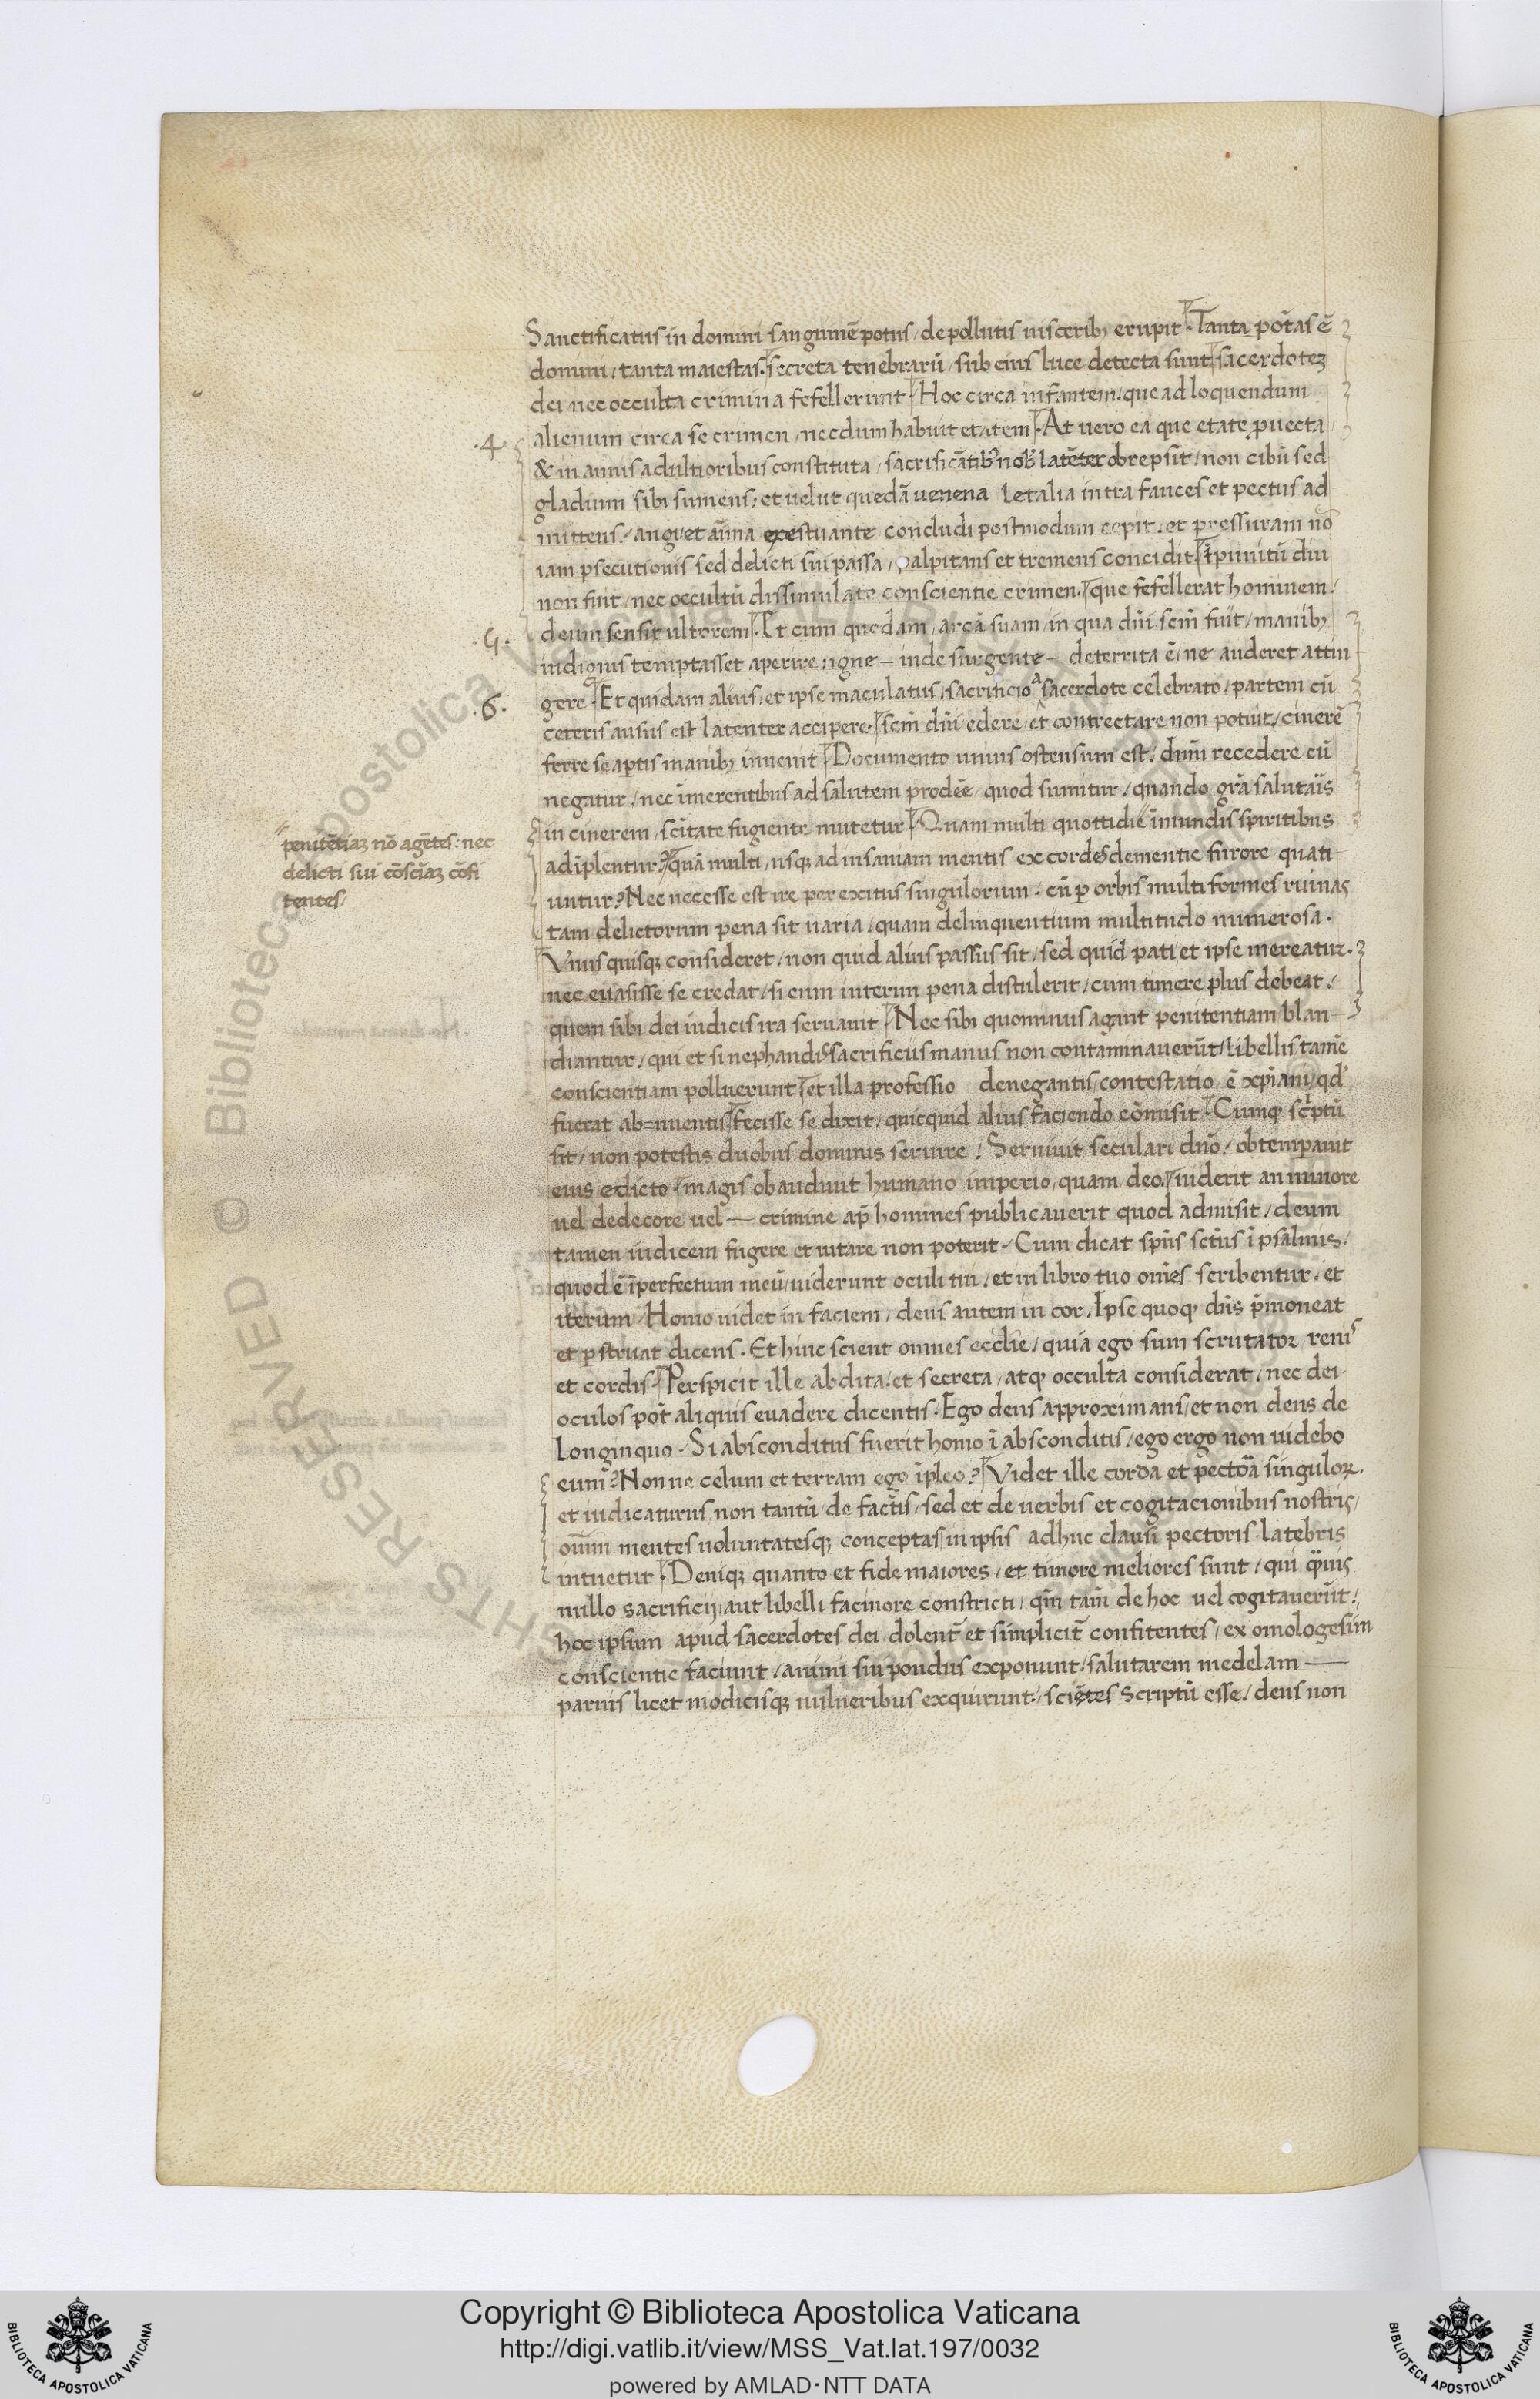 Sanctificatus in domini sanguinē potus / de pollutis uisceribꝫ erupit · Tanta potas̄ ē
domini / tanta maiestas. secreta tenebrarū / sub eius luce detecta sunt / sacerdoteꝫ
dei nec occulta crimina fefellerunt · Hoc circa infantem / que ad loquendum
alienum circa se crimen / necdum habuit etatem · At uero ea que etate ꝓuecta /
.4.
& in annis adultioribus constituta / sacrificātibꝰ nobꝰ latēter obrepsit / non cibū sed
gladium sibi sumens / et uelut quedā uenena letalia intra fauces et pectus ad-
mittens / angi et aīma exestuante concludi postmodum cepit / et pressuram nō
iam ꝑsecutionis sed delicti sui passa / palpitans et tremens concidit · īpunitū diu
non fuit / nec occultū dissimulate conscientie crimen. que fefellerat hominem /
deum sensit ultorem · Et cum quedam / arcā suam / in qua dn̄i scm̄ fuit / manibꝫ
.5.
indignis temptasset aperire / igne — inde surgente — deterrita ē / ne auderet attin-
gere · Et quidam alius / et ipse maculatus / sacrificio a sacerdote celebrato / partem cū
.6.
ceteris ausus est latenter accipere · scm̄ dn̄i edere / et contrectare non potuit / cinerē
ferre se aptis manibꝫ inuenit · Documento unius ostensum est / dnm̄ recedere cū
negatur / nec īmerentibus ad salutem prodeē / quod sumitur / quando gr̄a salutaīs
in cinerem / scītate fugiente mutetur · Quam multi quottidie īmundis spiritibus
adīplentur? quā multi / usqꝫ ad insaniam mentis excordes dementie furore quati-
untur? Nec necesse est ire per exitus singulorum / cū ꝑ orbis multiformes ruinas
tam delictorum pena sit uaria / quam delinquentium multitudo numerosa ·
penitētiaꝫ nō agētes: nec
delicti sui cōsciāꝫ cōfi
tentes /
Vnus quisqꝫ consideret / non quid alius passus sit / sed quid pati et ipse mereatur ·
nec euasisse se credat / si eum interim pena distulerit / cum timere plus debeat /
quem sibi dei iudicis ira seruauit · Nec sibi quominus agant penitentiam blan-
diantur / qui et si nephandis sacrificiis manus non contaminauerūt / libellis tamē
conscientiam polluerunt / et illa professio denegantis / contestatio ē xp̄iani / qdꝰ
fuerat ab=nuentis / fecisse se dixit / quicquid alius faciendo cōmisit · Cumqꝫ scͥptū
sit / non potestis duobus dominis seruire / Seruiuit seculari dn̄o / obtemꝑauit
eius edicto / magis obaudiuit humano imperio / quam deo. uiderit an minore
uel dedecore uel — crimine ap̄ homines publicauerit quod admisit / deum
tamen iudicem fugere et uitare non poterit / Cum dicat sp̄us sctūs ī psalmis /
quod ē īperfectum meū / uiderunt oculi tui / et in libro tuo om̄es scribentur / et
iterum / Homo uidet in faciem / deus autem in cor / Ipse quoqꝫ dn̄s p̄moneat
et ꝑstruat dicens · Et hinc scient omnes ecclie / quia ego sum scrutator renis
et cordis · Perspicit ille abdita / et secreta / atqꝫ occulta considerat / nec dei
oculos pot̄ aliquis euadere dicentis · Ego deus approximans / et non deus de
longinquo · Si absconditus fuerit homo ī absconditis / ego ergo non uidebo
eum? Nonne celum et terram ego īpleo? Videt ille corda et pectora singuloꝝ.
et iudicaturus non tantū de factis / sed et de uerbis et cogitacionibus nostris /
oīum mentes uoluntatesqꝫ conceptas in ipsis adhuc clausi pectoris latebris
intuetur · Deniqꝫ quanto et fide maiores / et timore meliores sunt / qui quīs
nullo sacrificij / aut libelli facinore constricti / qm̄ tam̄ de hoc uel cogitauerūt /
hoc ipsum apud sacerdotes dei / dolent̄ et simplicit̄ confitentes / exomologesim
conscientie faciunt / animi sui pondus exponunt / salutarem medelam —
paruis licet modicisqꝫ uulneribus exquirunt / sciētes scriptū esse / deus non
Copyright © Biblioteca Apostolica Vaticana
http://digi.vatlib.it/view/MSS_Vat.lat.197/0032
powered by AMLAD·NTT DATA
BIBLIOTECA APOSTOLICA VATICANA
BIBLIOTECA APOSTOLICA VATICANA